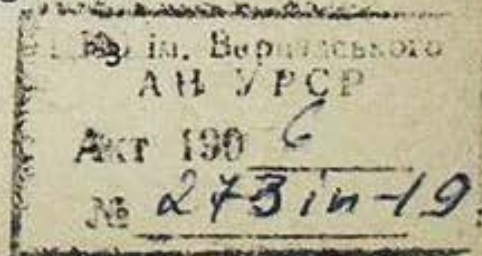 ім. Вернадського
АН УРСР
Акт 190 6
№ 273 in-19